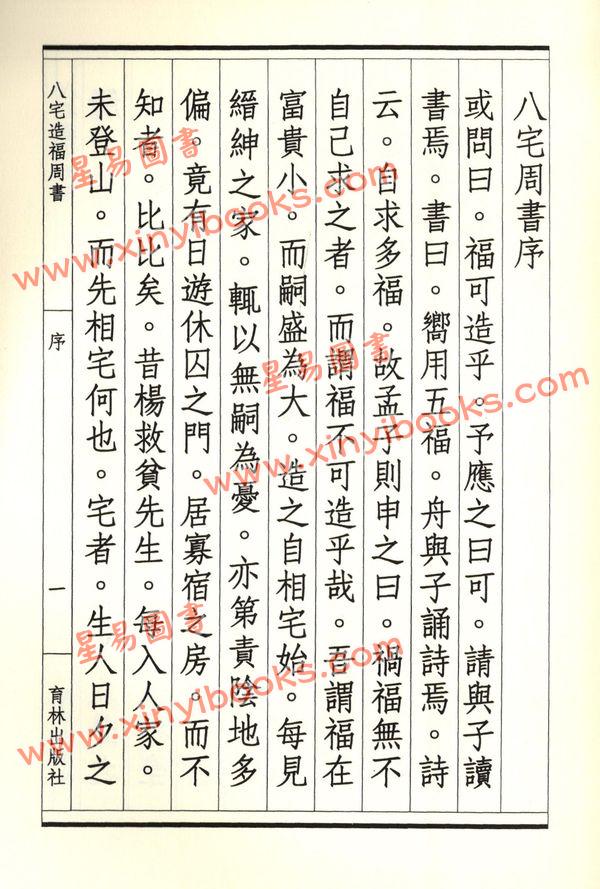 八宅周書序
或問曰。福可造乎。予應之曰可。請與子讀
書焉。書曰。嚮用五福。舟與子誦詩焉。詩
云。自求多福。故孟子則申之曰。禍福無不
自己求之者。而謂福不可造乎哉。吾謂福在
富貴小。而嗣盛為大。造之自相宅始。每見
縉紳之家。輒以無嗣為憂。亦第責陰地多
偏。竟有日遊休囚之門。居寡宿之房。而不
知者。比比矣。昔楊救貧先生。每入人家。
未登山。而先相宅何也。宅者。生人日夕之
八宅造福周書
序
一
育林出版社
星易圖書
www.xinyibooks.com
星易圖書
www.xinyibooks.com
星易圖書
www.xinyibooks.com